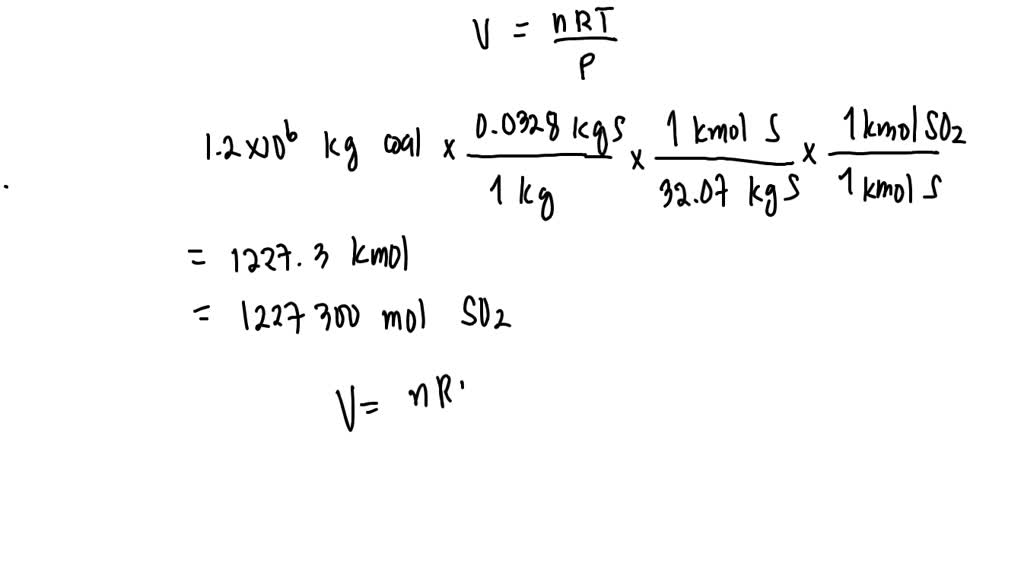 V = nRT/P
1.2x10⁶ kg coal x 0.0328 kgS/1 kg x 1 kmol S/32.07 kgS x 1 kmol SO₂/1 kmol S
= 1227.3 kmol
= 1227300 mol SO₂
V= nR